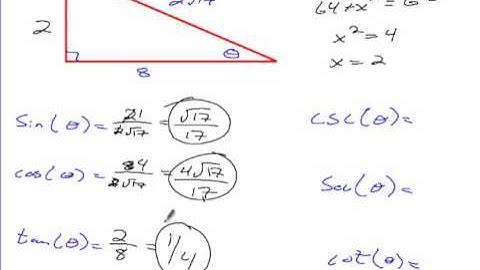 2√17
64 + x² = 6
2
x² = 4
x = 2
θ
8
sin(θ) = 21/2√17 = √17/17
csc(θ) =
cos(θ) = 84/2√17 = 4√17/17
sec(θ) =
tan(θ) = 2/8 = 1/4
cot(θ) =